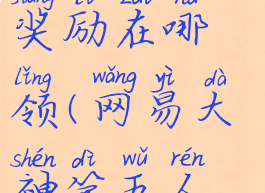 奖励在哪
lǐng wǎng yì dà
领(网易大
shén dì wǔ rén
神第五人